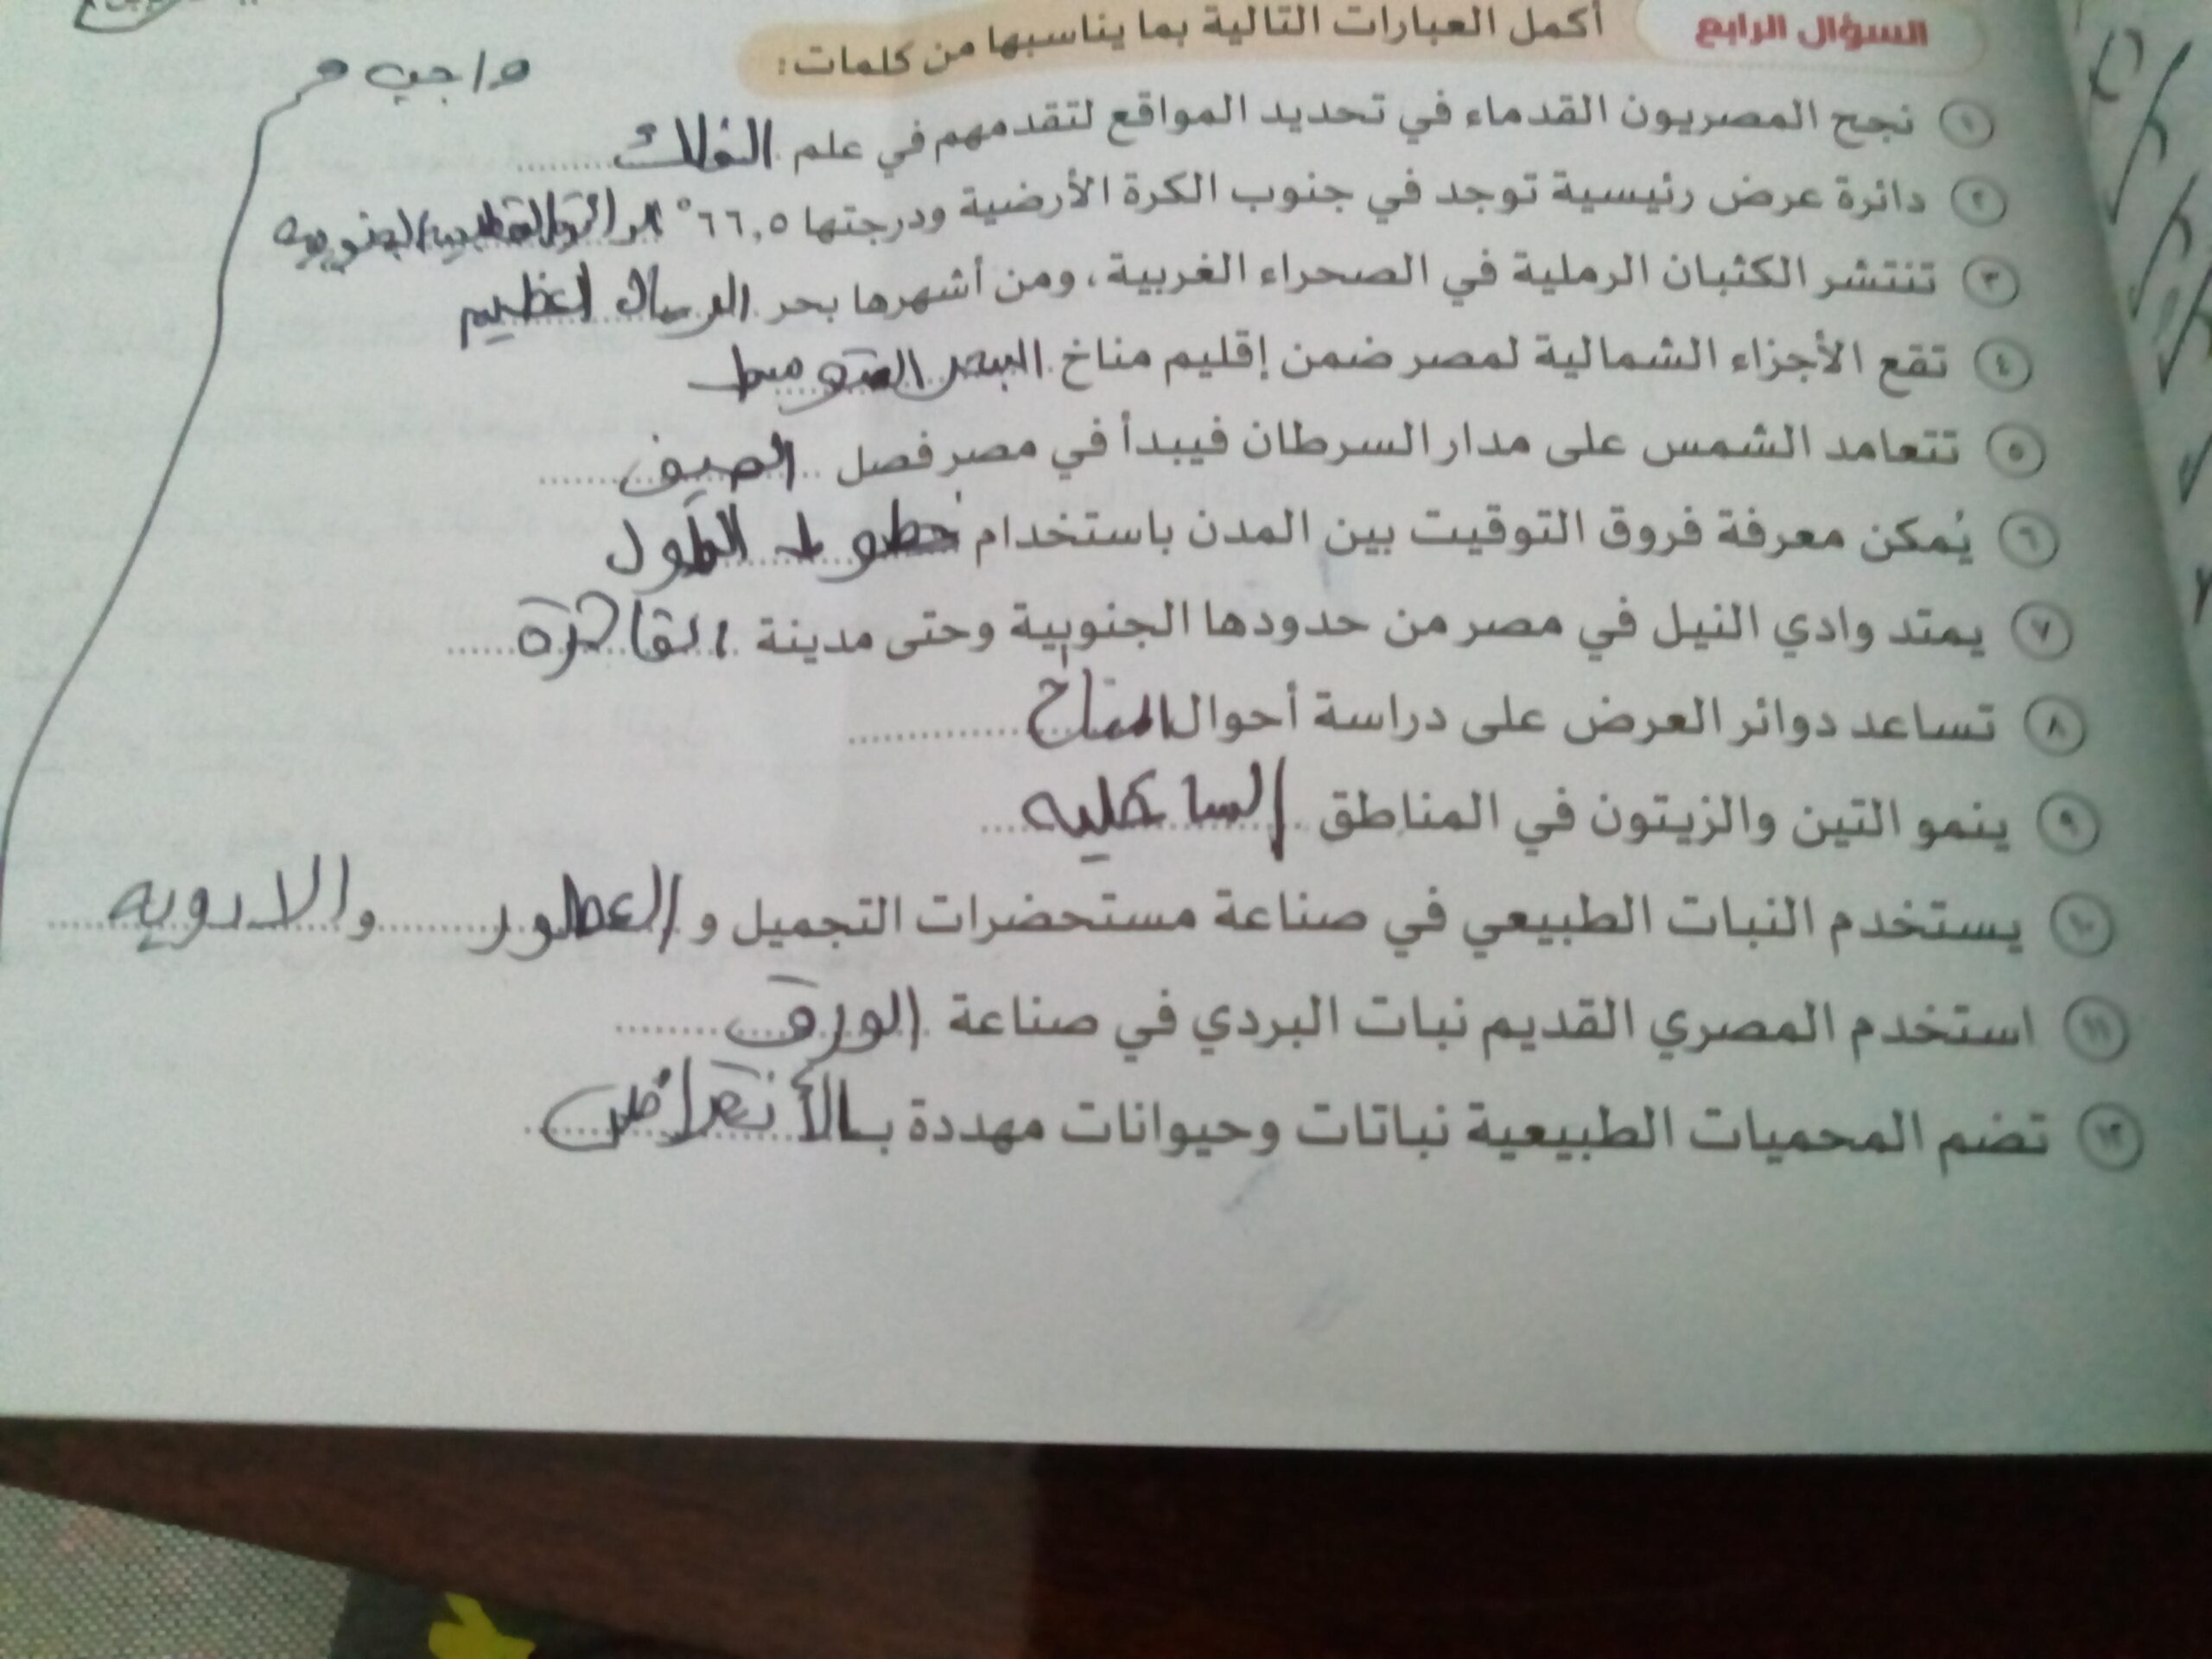 السؤال الرابع أكمل العبارات التالية بما يناسبها من كلمات:
واجب
١ نجح المصريون القدماء في تحديد المواقع لتقدمهم في علم الفلك
٢ دائرة عرض رئيسية توجد في جنوب الكرة الأرضية ودرجتها ٦٦,٥° الدائرة القطبية الجنوبيه
٣ تنتشر الكثبان الرملية في الصحراء الغربية، ومن أشهرها بحر الرمال العظيم
٤ تقع الأجزاء الشمالية لمصر ضمن إقليم مناخ البحر المتوسط
٥ تتعامد الشمس على مدار السرطان فيبدأ في مصر فصل الصيف
٦ يُمكن معرفة فروق التوقيت بين المدن باستخدام خطوط الطول
٧ يمتد وادي النيل في مصر من حدودها الجنوبية وحتى مدينة القاهرة
٨ تساعد دوائر العرض على دراسة أحوال المناخ
٩ ينمو التين والزيتون في المناطق الساحليه
١٠ يستخدم النبات الطبيعي في صناعة مستحضرات التجميل و العطور و الادويه
١١ استخدم المصري القديم نبات البردي في صناعة الورق
١٢ تضم المحميات الطبيعية نباتات وحيوانات مهددة بالأنقراض